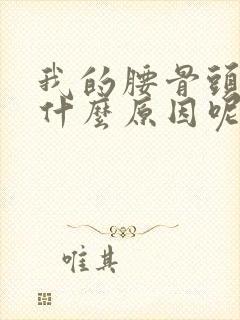 我的腰骨頭
什麼原因呢
唯其